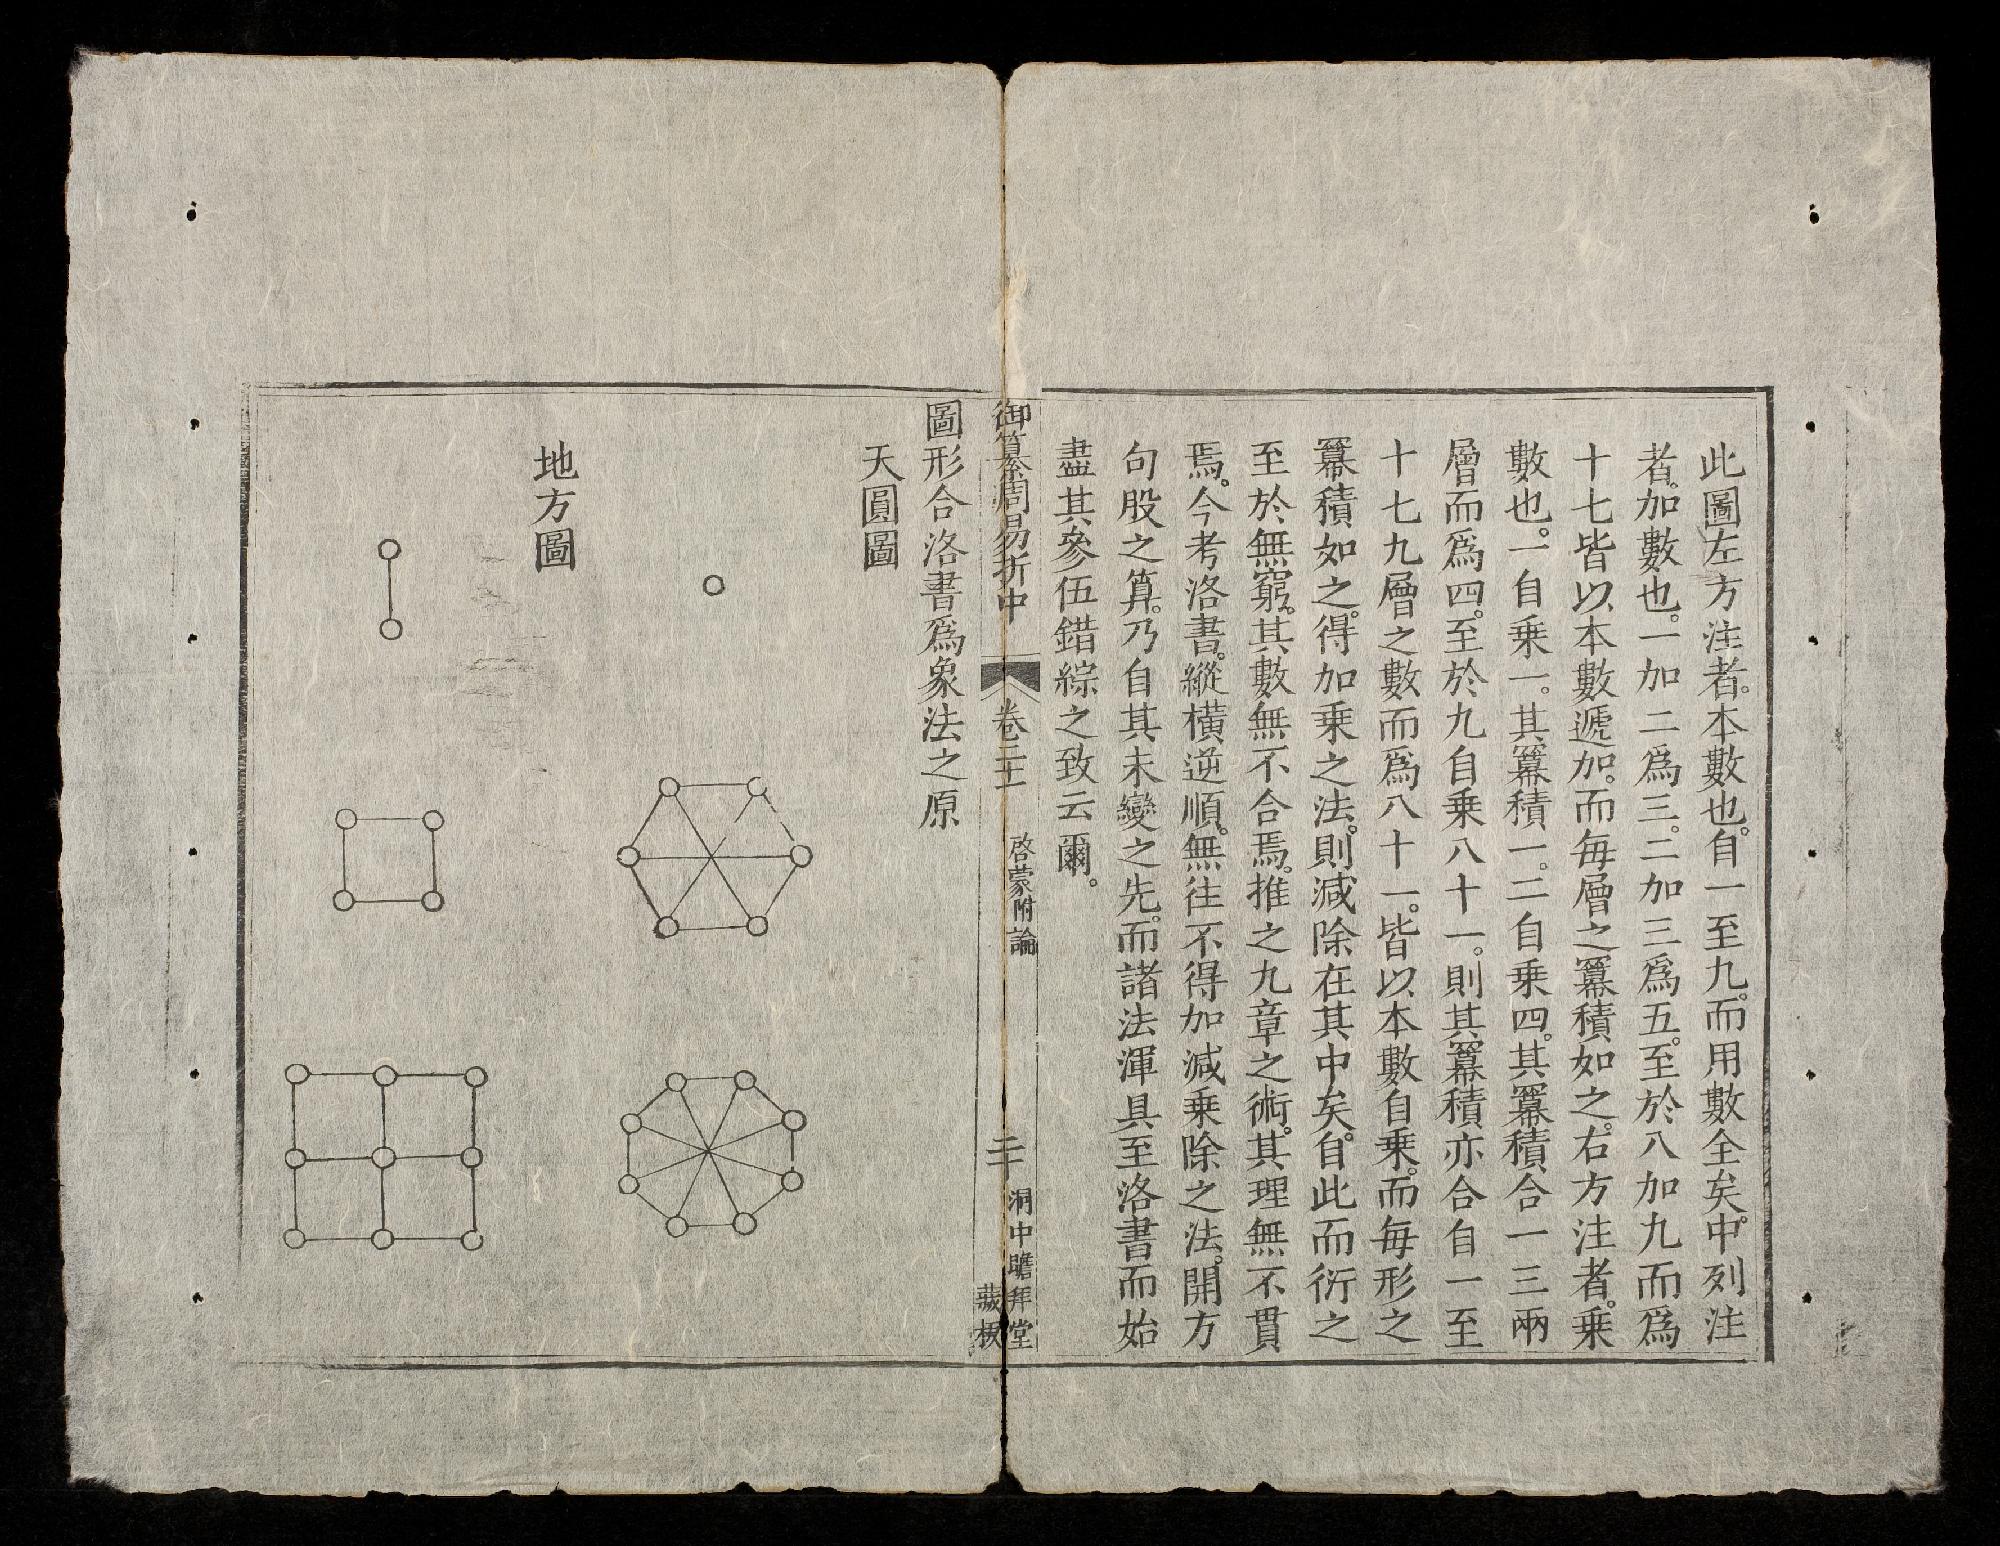 此圖左方注者。本數也。自一至九。而用數全矣。中列注
者。加數也。一加二爲三。二加三爲五。至於八加九而爲
十七皆以本數遞加。而每層之冪積如之。右方注者。乘
數也。一自乘一。其冪積一。二自乘四。其冪積合一三兩
層而爲四。至於九自乘八十一。則其冪積亦合自一至
十七九層之數而爲八十一。皆以本數自乘。而每形之
冪積如之。得加乘之法。則減除在其中矣。自此而衍之
至於無窮。其數無不合焉。推之九章之術。其理無不貫
焉。今考洛書。縱橫逆順。無往不得加減乘除之法。開方
句股之算。乃自其未變之先。而諸法渾具至洛書而始
盡其參伍錯綜之致云爾。
御纂周易折中
卷二十一
啓蒙附論
二十
洞中瞻拜堂
藏板
圖形合洛書爲象法之原
天圓圖
地方圖